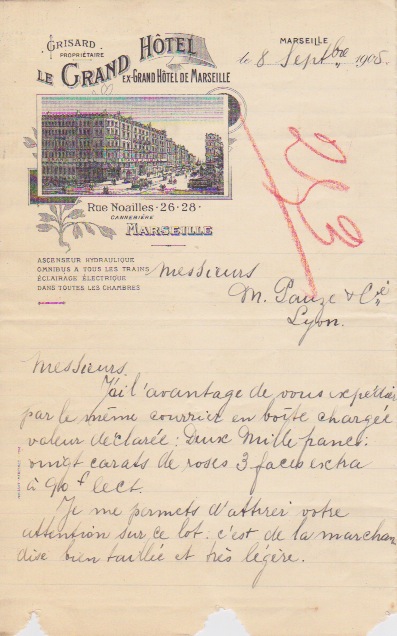 GRISARD
PROPRIÉTAIRE
LE GRAND HÔTEL
EX-GRAND HÔTEL DE MARSEILLE
MARSEILLE
le 8 Septbre 1905.
253
Rue Noailles · 26 · 28
CANNEBIÈRE
MARSEILLE
ASCENSEUR HYDRAULIQUE
OMNIBUS A TOUS LES TRAINS
ÉCLAIRAGE ÉLECTRIQUE
DANS TOUTES LES CHAMBRES
Messieurs
M. Pauze & Cie
Lyon.
Messieurs
J'ai l'avantage de vous expédier
par le même courrier en boîte chargée
valeur déclarée: Deux Mille francs:
vingt carats de roses 3 faces extra
à 90 f le ct.
Je me permets d'attirer votre
attention sur ce lot. c'est de la marchan
dise bien taillée et très légère.